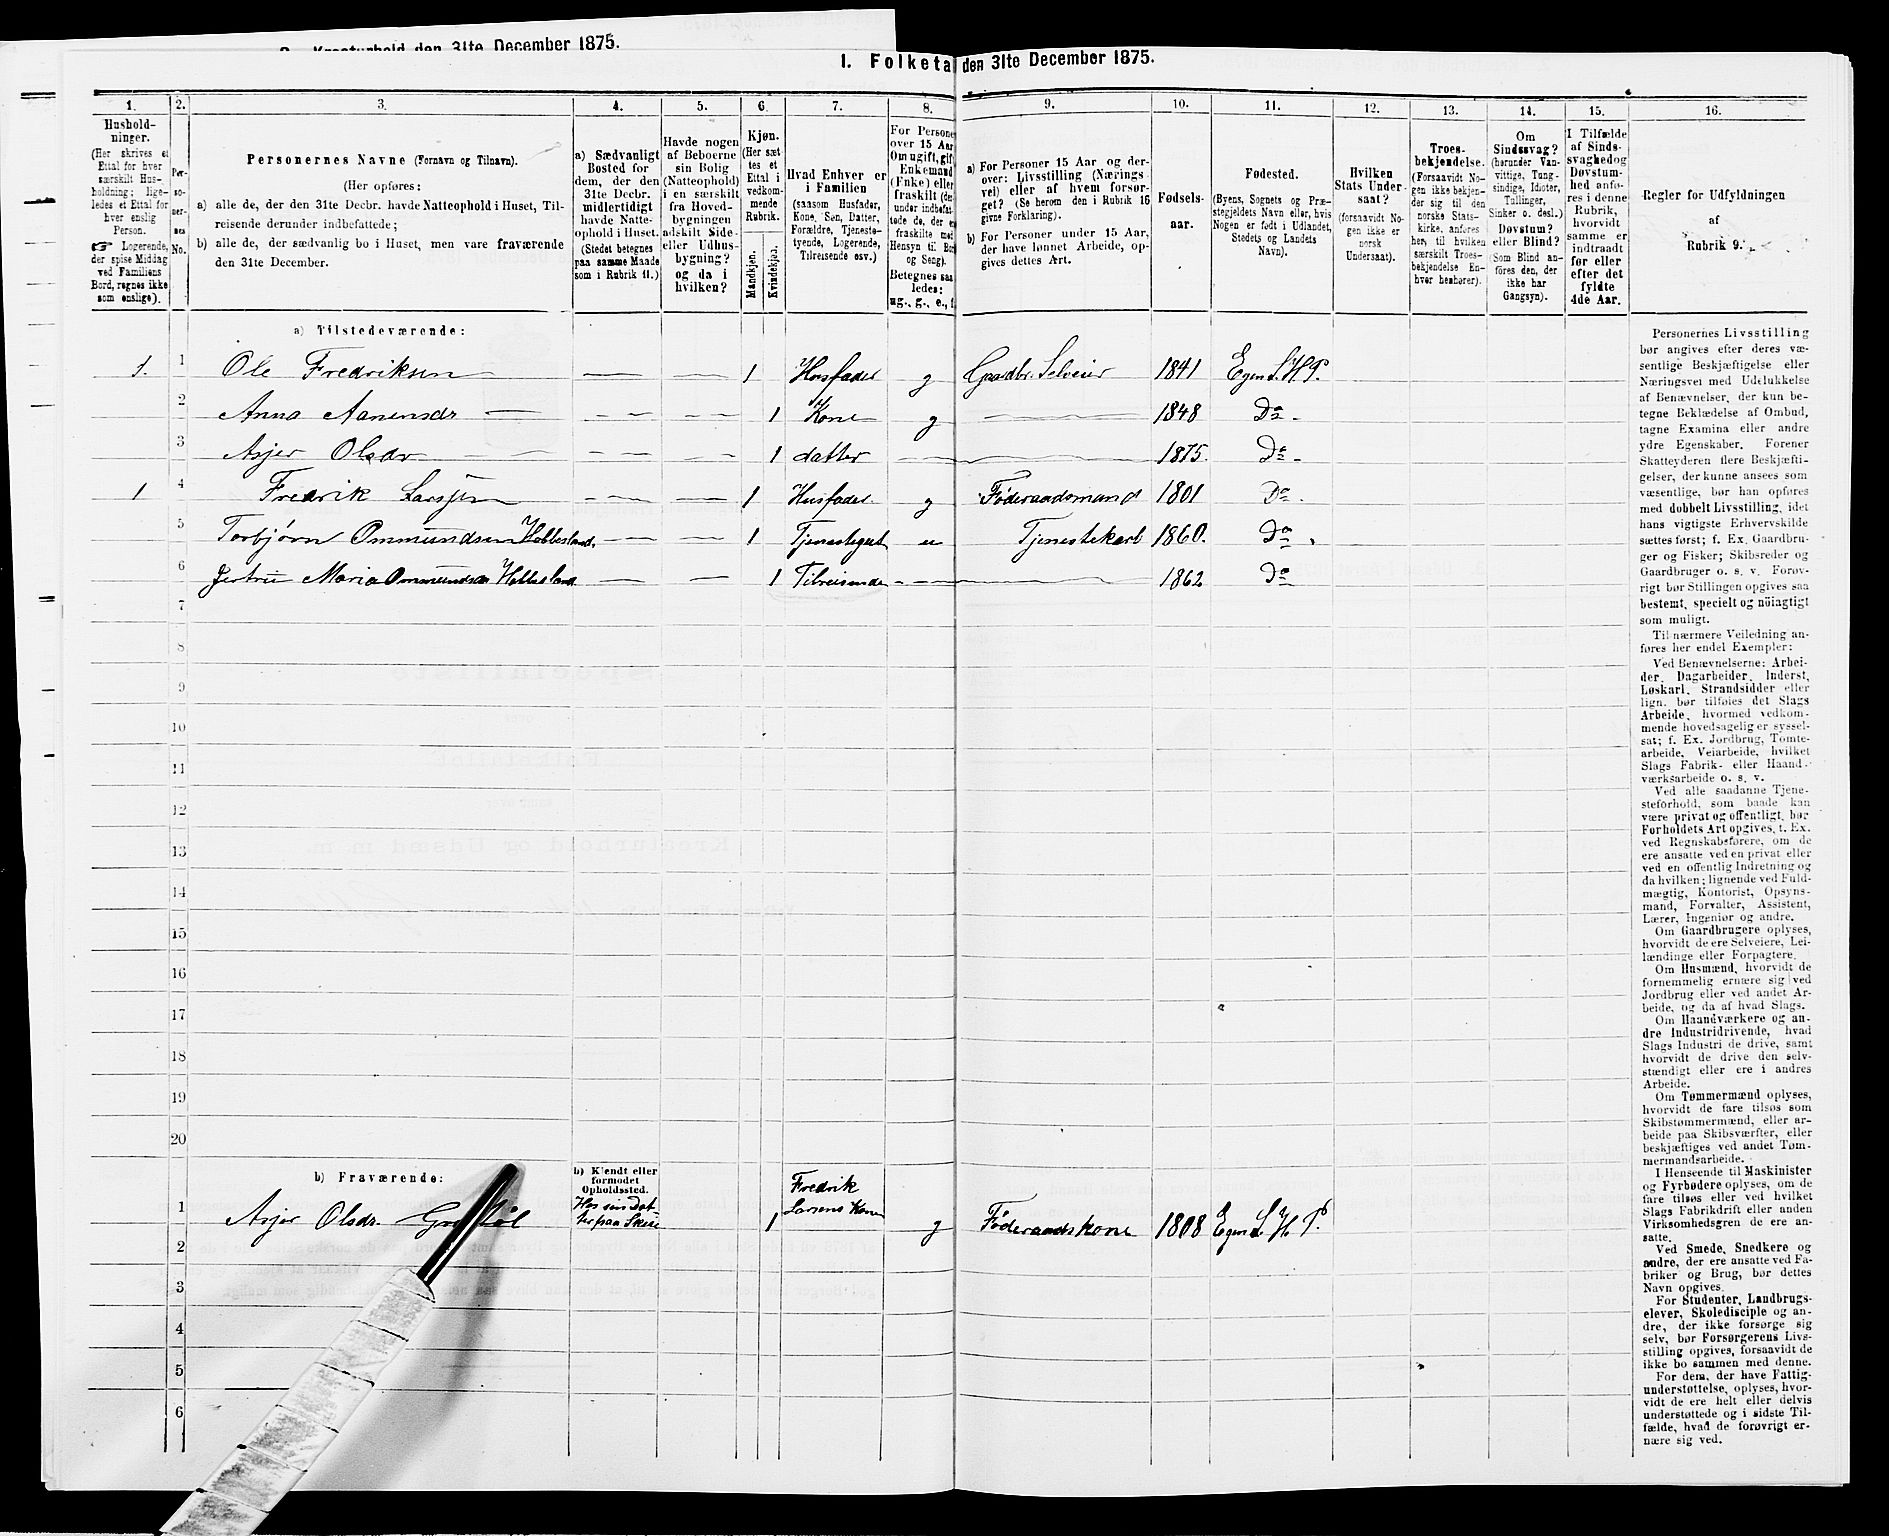 2. Kreaturhold den 31te December 1875.
I. Folketal den 31te December 1875.
1. 2. 3. 4. 5. 6. 7. 8. 9. 10. 11. 12. 13. 14. 15. 16.
Husholdninger.
(Her skrives et
Ettal for hver
særskilt Husholdning;
ligeledes et Ettal for
hver enslig
Person.
☞ Logerende,
der spise Middag
ved Familiens
Bord, regnes ikke
som enslige).
Personernes No.
Personernes Navne (Fornavn og Tilnavn).
(Her opføres:
a) alle de, der den 31te Decbr. havde Natteophold i Huset, Tilreisende derunder indbefattede;
b) alle de, der sædvanlig bo i Huset, men vare fraværende
den 31te December.
a) Sædvanligt
Bosted for
dem, der den
31te Decbr.
midlertidigt
havde Natteophold i Huset.
(Stedet betegnes
paa samme Maade
som i Rubrik 11.)
Havde nogen
af Beboerne
sin Bolig
(Natteophold)
i en særskilt
fra Hovedbygningen
adskilt Side- eller Udhusbygning?
og da i
hvilken?
Kjøn.
(Her sættes et
Ettal i
vedkommende
Rubrik.
Mandkjøn.
Kvindekjøn.
Hvad Enhver er
i Familien
(saasom Husfader,
Kone, Søn, Datter,
Forældre, Tjenestetyende, Logerende,
Tilreisende osv.)
For Persone
over 15 Aar
Om ugift, gift
Enkemand
(Enke) eller
fraskilt
Betegnes saaledes:
ug., g., e., f.
a) For Personer 15 Aar og derover: Livsstilling (Næringsvei) eller af hvem forsørget? (Se herom den i Rubrik 16
givne Forklaring).
b) For Personer under 15 Aar,
der have lønnet Arbeide, opgives dettes Art.
Fødselsaar.
Fødested.
(Byens, Sognets og Præstegjeldets Navn eller, hvis
Nogen er født i Udlandet,
Stedets og Landets
Navn).
Hvilken
Stats Undersaat?
(forsaavidt Nogen ikke er
norsk
Undersaat).
Troesbekjendelse.
(Forsaavidt Nogen ikke bekjender sig til den
norske Statskirke, anføres
her, til hvilken
særskilt Troesbekjendelse Enhver henhører).
Om
Sindssvag?
(herunder Vanvittige, Tungsindige, Idioter,
Tullinger,
Sinker o. desl.)
Døvstum?
eller Blind?
(Som Blind anføres den, der
ikke har
Gangsyn).
I Tilfælde
af Sindssvaghed og
Døvstumhed anføres i denne
Rubrik,
hvorvidt
samme er
indtraadt
før eller
efter det
fyldte
4de Aar.
Regler for Udfyldningen
af
Rubrik 9.
a) Tilstedeværende:
1. 1 Ole Fredriksen — — 1 Husfader g Gaardbr. Selveier 1841 Egers. L. H. P.
2 Anna Aanensdr — — 1 Kone g — 1848 Do
3 Asjer Olsdr — — 1 datter — 1875. Do
1 4 Fredrik Larssen — — 1 Husfader g Føderaadsmand 1801 Do
5 Torbjørn Ommundsen Hobbesland. — — 1 Tjenestegut u Tjenestekarl 1860. Do
6 Maria Ommundsdr Hobbesland — — 1 Tilreisende — 1862 Do
7
8
9
10
11
12
13
14
15
16
17
18
19
20
b) Fraværende:
b) Kjendt eller
formodet
Opholdssted.
1 Asjer Olsdr. Hos sin datter paa 1 Fredrik Larsens Kone g Føderaadskone 1808 Egers. L. H. P.
2
3
4
5
6
Personernes Livsstilling
bør angives efter deres væsentlige Beskjæftigelse eller
Næringsvei med Udelukkelse
af Benævnelser, der kun betegne Beklædelse af Ombud,
tagne Examina eller andre
ydre Egenskaber. Forener
Skatteyderen flere Beskjæftigelser, der kunne ansees som
væsentlige, bør han opføres
med dobbelt Livsstilling, idet
hans vigtigste Erhvervskilde
sættes først; f. Ex. Gaardbruger og Fisker; Skibsreder og
Gaardbruger o. s. v. Forøvrigt bør Stillingen opgives saa
bestemt, specielt og nöiagtigt
som muligt.
Til nærmere Veiledning anføres her endel Exempler:
Ved Benævnelserne: Arbeider, Dagarbeider, Inderst,
Løskarl, Strandsidder eller
lign. bør tilføies det Slags
Arbeide, hvormed vedkommende hovedsagelig er sysselsat; f. Ex. Jordbrug, Tomtearbeide, Veiarbeide, hvilket
Slags Fabrik- eller Haandværksarbeide o. s. v.
Ved alle saadanne Tjenesteforhold, som baade kan
være privat og offentligt, bør
Forholdets Art opgives, t. Ex.
ved Regnskabsførere, om de
ere ansatte ved en privat eller
ved en offentlig Indretning og
da hvilken; lignende ved Fuldmægtig, Kontorist, Opsynsmand, Forvalter, Assistent,
Lærer, Ingeniør og andre.
Om Gaardbrugere oplyses,
hvorvidt de ere Selveiere, Leilændinge eller Forpagtere.
Om Husmænd, hvorvidt de
fornemmelig ernære sig ved
Jordbrug eller ved andet Arbeide, og da af hvad Slags.
Om Haandværkere og andre Industridrivende, hvad
Slags Industri de drive, samt
hvorvidt de drive den selvstændigt eller ere i andres
Arbeide.
Om Tømmermænd oplyses,
hvorvidt de fare tilsøs som
Skibstømmermænd, eller arbeide paa Skibsværfter, eller
beskjæftiges ved andet Tømmermandsarbeide.
I Henseende til Maskinister
og Fyrbødere oplyses, om de
fare tilsøs eller ved hvilket
Slags Fabrikdrift eller anden
Virksomhedsgren de ere ansatte.
Ved Smede, Snedkere og
andre, der ere ansatte ved Fabriker og Brug, bør dettes
Navn opgives.
For Studenter, Landbrugselever, Skoledisciple og andre, der ikke forsørge sig
selv, bør Forsørgerens Livsstilling opgives, forsaavidt de
ikke bo sammen med denne.
For dem, der have Fattigunderstøttelse, oplyses, hvorvidt de ere helt eller delvis
understøttede og i sidste Tilfælde, hvad de forøvrigt ernære sig ved.